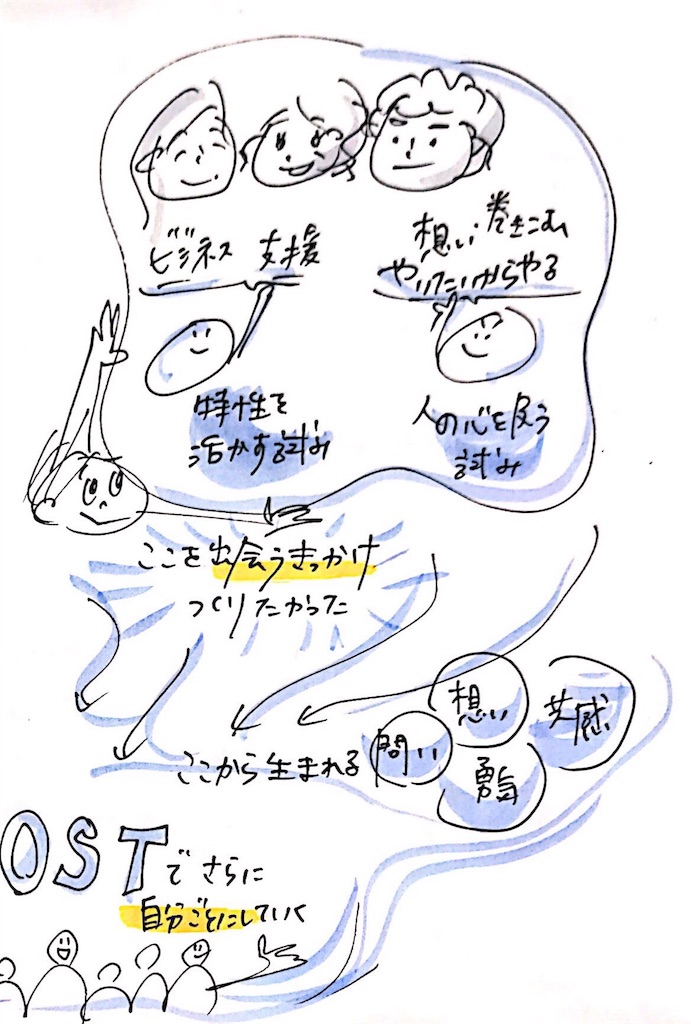 ビジネス 支援
想い 巻きこむ
やりたいからやる
特性を
活かす試み
人の心を反う
試み
ここを出会うきっかけ
つくりたかった
想い
共感
問い
勇気
ここから生まれる
OSTでさらに
自分ごとにしていく